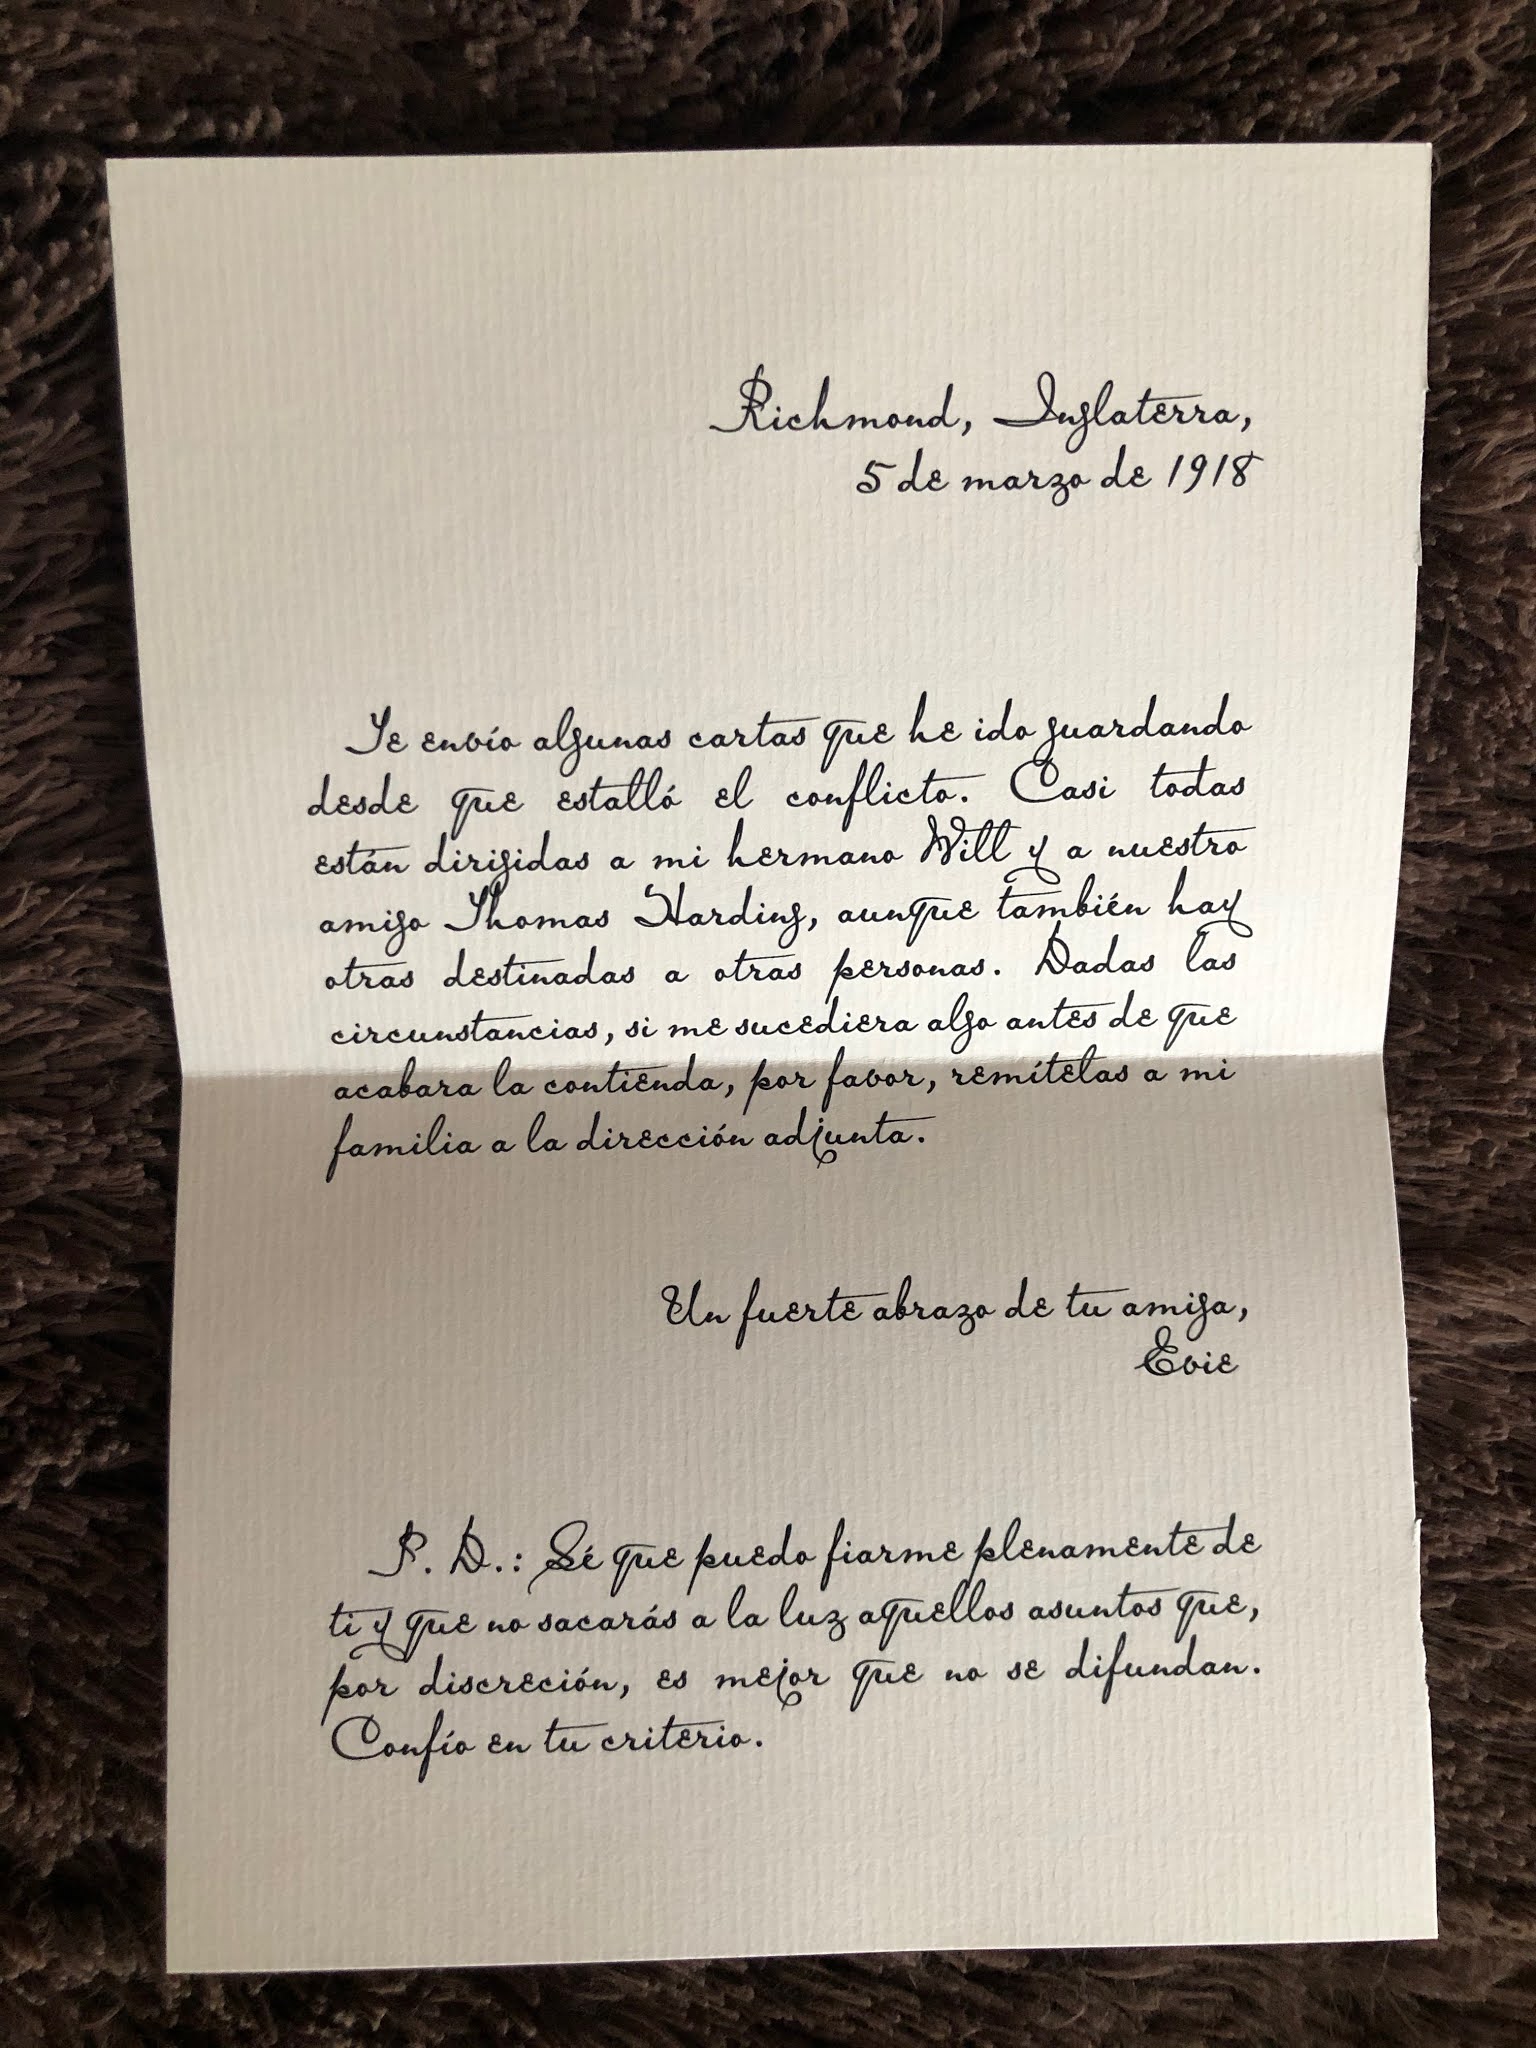 Richmond, Inglaterra,
5 de marzo de 1918
Te envío algunas cartas que he ido guardando
desde que estalló el conflicto. Casi todas
están dirigidas a mi hermano Will y a nuestro
amigo Thomas Harding, aunque también hay
otras destinadas a otras personas. Dadas las
circunstancias, si me sucediera algo antes de que
acabara la contienda, por favor, remítelas a mi
familia a la dirección adjunta.
Un fuerte abrazo de tu amiga,
Evie
P. D.: Sé que puedo fiarme plenamente de
ti y que no sacarás a la luz aquellos asuntos que,
por discreción, es mejor que no se difundan.
Confío en tu criterio.